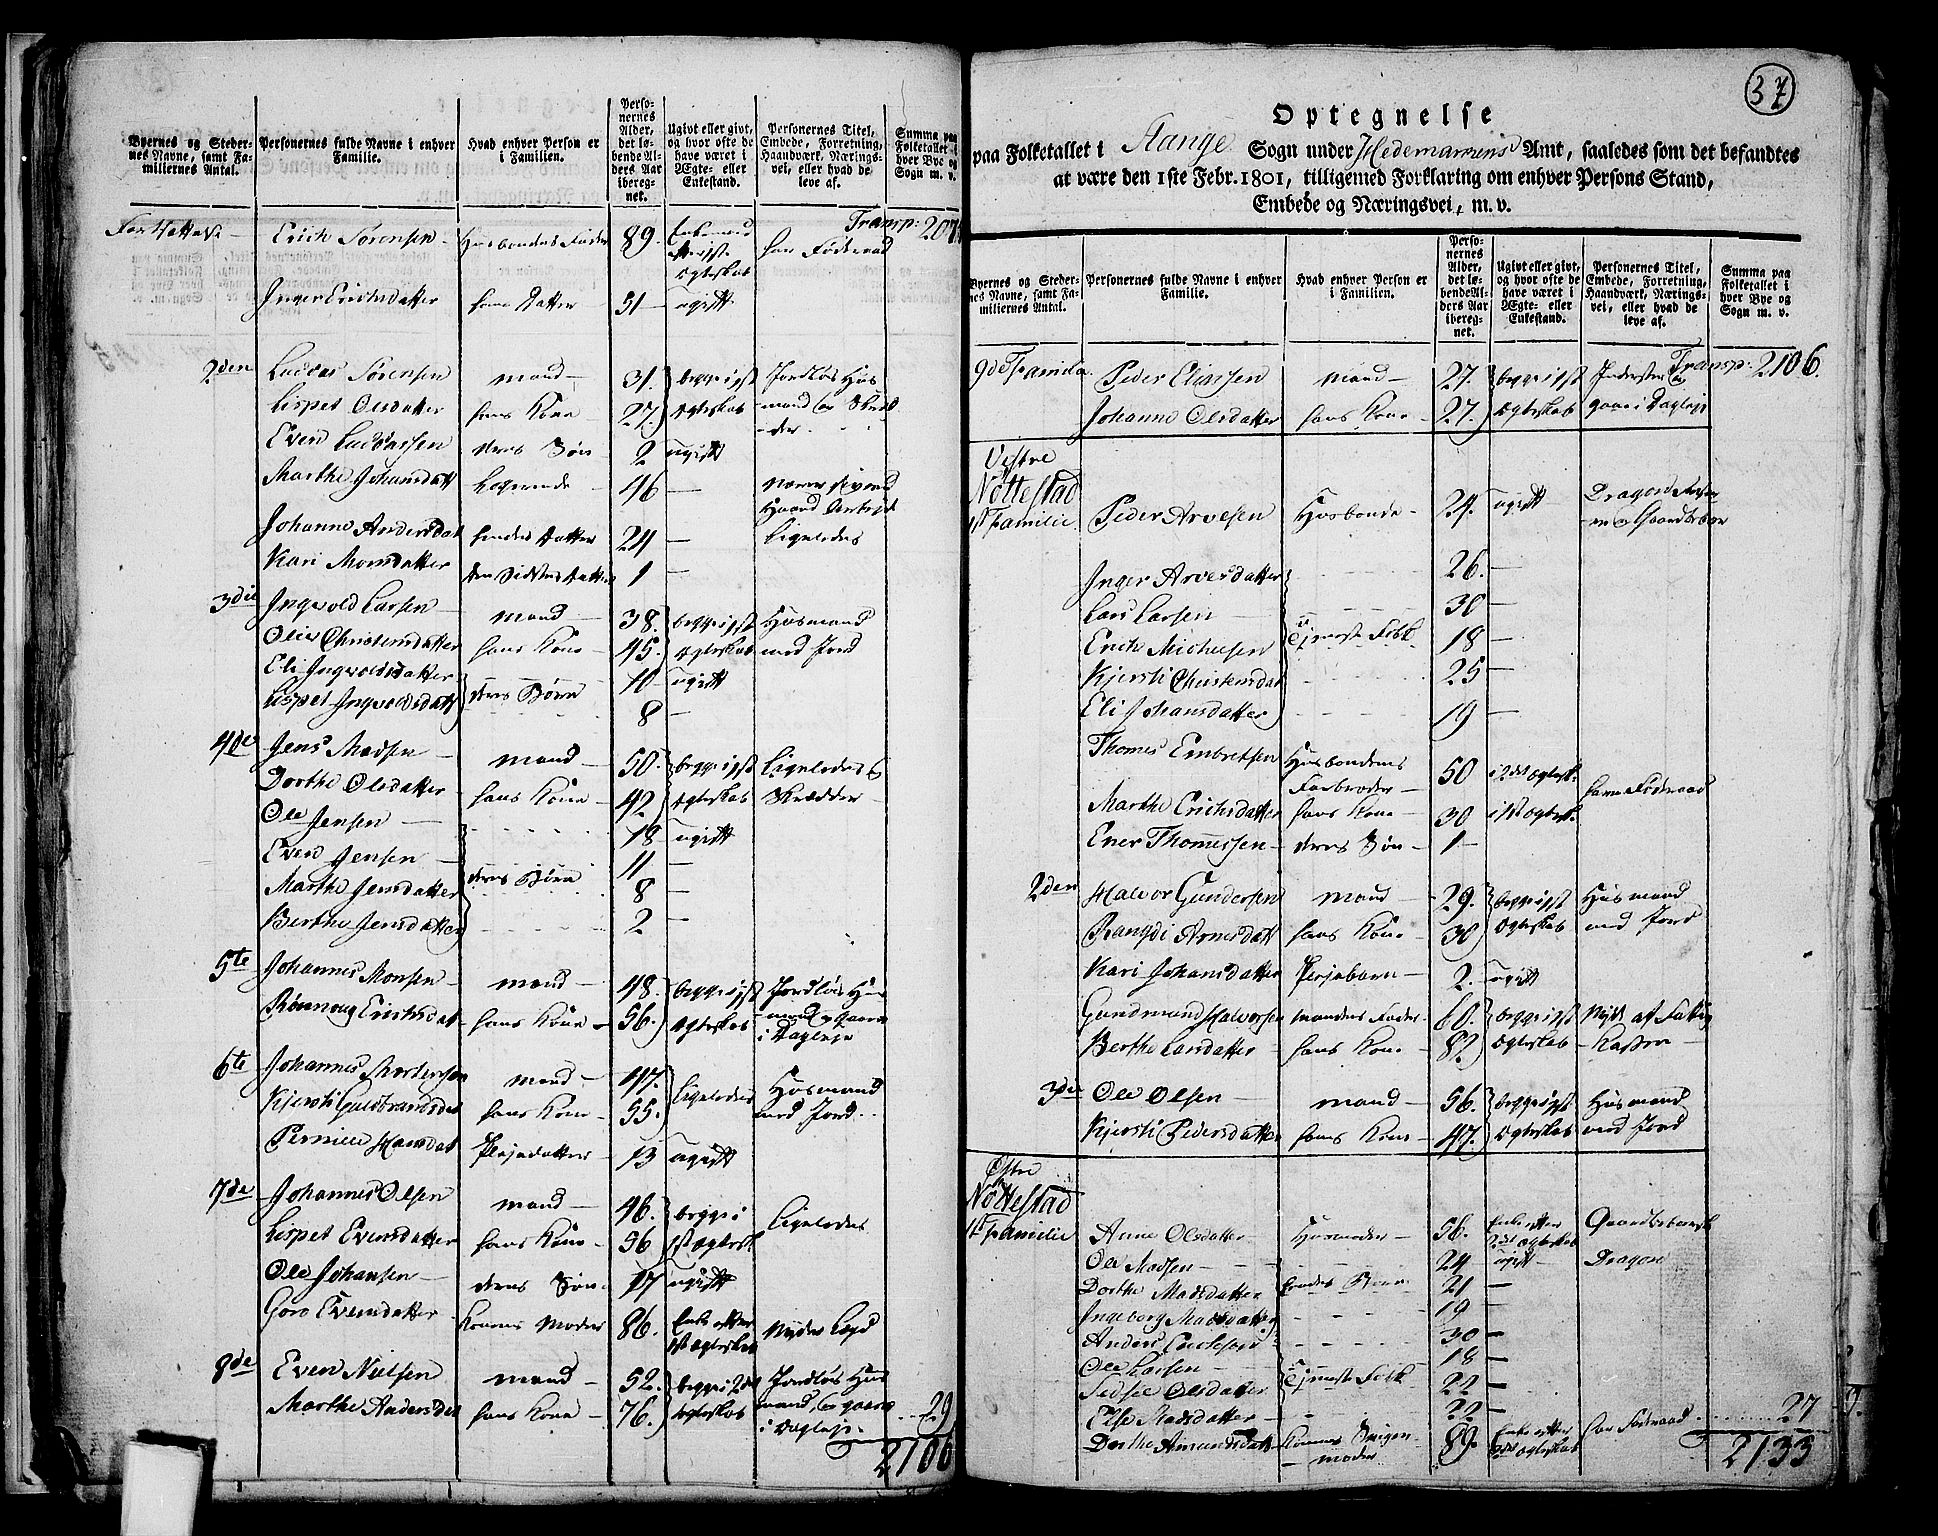 Byernes og Steder-
nes Navne, samt Fa-
miliernes Antal.
Personernes fulde Navne i enhver
Familie.
Hvad enhver Person er
i Familien.
Perso-
nernes
Alder,
det lø-
bende Al-
ders Aar
ibereg-
net.
Ugivt eller givt,
og hvor ofte de
have været i
Ægte- eller
Enkestand.
Personernes Titel,
Embede, Forretning,
Haandværk, Nærings-
vei, eller hvad de
leve af.
Summa paa
Folketallet i
hver Bye og
Sogn m. v.
Transp:
Erich Sørensen Husbondes Fader 89. har Føderaad
Inger Erichsdatter hans Datter 51 ugift
2den Sørensen mand 31. begge i 1ste Jordløs Huus
Lispet Olsdatter hans Kone 27. Ægteskab mand og
Even deres Søn 2 ugift
Marthe Johansdatt Logerende 46 —
Johanne Andersdat hendes Datter 24 — Ligeledes
Kari Monsdatter den Sidstes Datter 1 —
3die Ingvold Larsen mand 38. begge i 1ste Huusmand
Olie Christensdatter hans Kone 45. Ægteskab med Jord
Eli Ingvoldsdatter 10 ugift
Lispet Ingvoldsdatt deres Børn 8 —
4de Jens Madsen mand 50. begge i 1ste Ligeledes &
Dorthe Olsdatter hans Kone 42. Ægteskab Skrædder
Ole Jensen 18 ugift
Even Jensen 11 —
Marthe Jensdatter deres Børn 8 —
Berthe Jensdatter 2 —
5te Johannes Monsen mand 48. begge i 1ste Jordløs Huus
Rønnoug Erichsdat hans Kone 56. Ægteskab mand og gaaer
i Dagleje
6te Johannes Mortensen mand 47. Ligeledes Huusmand
Kjersti Gulbrandsdat hans Kone 55. med Jord
Pernille Hansdat Plejedatter 13 ugift
7de Johannes Olsen mand 46. begge i Ligeledes
Lispet Evensdatter hans Kone 56 1st ægtesk
Ole Johansen deres Søn 17 ugift
Goro Evensdatter Konens Moder 86. Enke efter
1st ægteskab
8de Even Nielsen mand 52. begge i 2det Jordløs Huus
Marthe Andersdat hans Kone 76. Ægteskab mand, og gaaer 29
i Dagleje
2106
37
Optegnelse
paa Folketallet i Stange Sogn under Hedemarkens Amt, saaledes som det befandtes
at være den 1ste Febr. 1801, tilligemed Forklaring om enhver Persons Stand,
Embede og Næringsvei, m. v.
Byernes og Steder-
nes Navne, samt Fa-
miliernes Antal.
Personernes fulde Navne i enhver
Familie.
Hvad enhver Person er
i Familien.
Perso-
nernes
Alder,
det lø-
bende Al-
ders Aar
ibereg-
net.
Ugivt eller givt,
og hvor ofte de
have været i
Ægte- eller
Enkestand.
Personernes Titel,
Embede, Forretning,
Haandværk, Nærings-
vei, eller hvad de
leve af.
Summa paa
Folketallet i
hver Bye og
Sogn m. v.
Transp: 2106.
9de Familie Peder Eliassen mand 27. begge i 1ste Inderster og
Johanne Olsdatter hans Kone 27. Ægteskab gaaer i Dagleje
Vestre
Nøttestad
1st Familie Peder Arvesen Husbonde 24. ugift Dragon
Inger Arvesdatter 26. —
Lars Larsen 30 —
Erich Michelsen Tjeneste Folk 18 —
Kjersti Christensdat 25 —
Eli Johansdatter 19 —
Thomes Embretsen Husbondens
Farbroder 50 i 2det ægtesk. have Føderaad
Marthe Erichsdatter hans Kone 30 i 1st ægtesk
Ener Thomessen deres Søn 1 —
2den Halvor Gundersen mand 29. begge i 1ste Huusmand
Rangdi Arnesdatt hans Kone 30 Ægteskab med Jord
Kari Johansdatter Plejebarn 2. ugift
Gundmund Halvorsen mandens Fader 60. begge i 1ste Nyde af Fattig
Berthe Larsdatter hans Kone 82. Ægteskab Kassen
3die Ole Olsen mand 56. begge i 1st Huusmand
Kjersti Pedersdatter hans Kone 47. Ægteskab med Jord
Østre
Nøttestad
1st Familie Anne Olsdatter Husmoder 56. Enke efter
2det ægteskab
Ole Madsen 24 ugift Dragon
Dorthe Madsdatter hendes Børn 21 —
Ingeborg Madsdatter 19 —
Anders Erichsen 30 —
Ole Larsen Tjeneste Folk 18 —
Olsdatter 22 —
Else Madsdatter 22 —
Dorthe Amundsdatt Konens Svigers
moder 89. Enke efter
2det ægteskab har Føderaad 27
2133